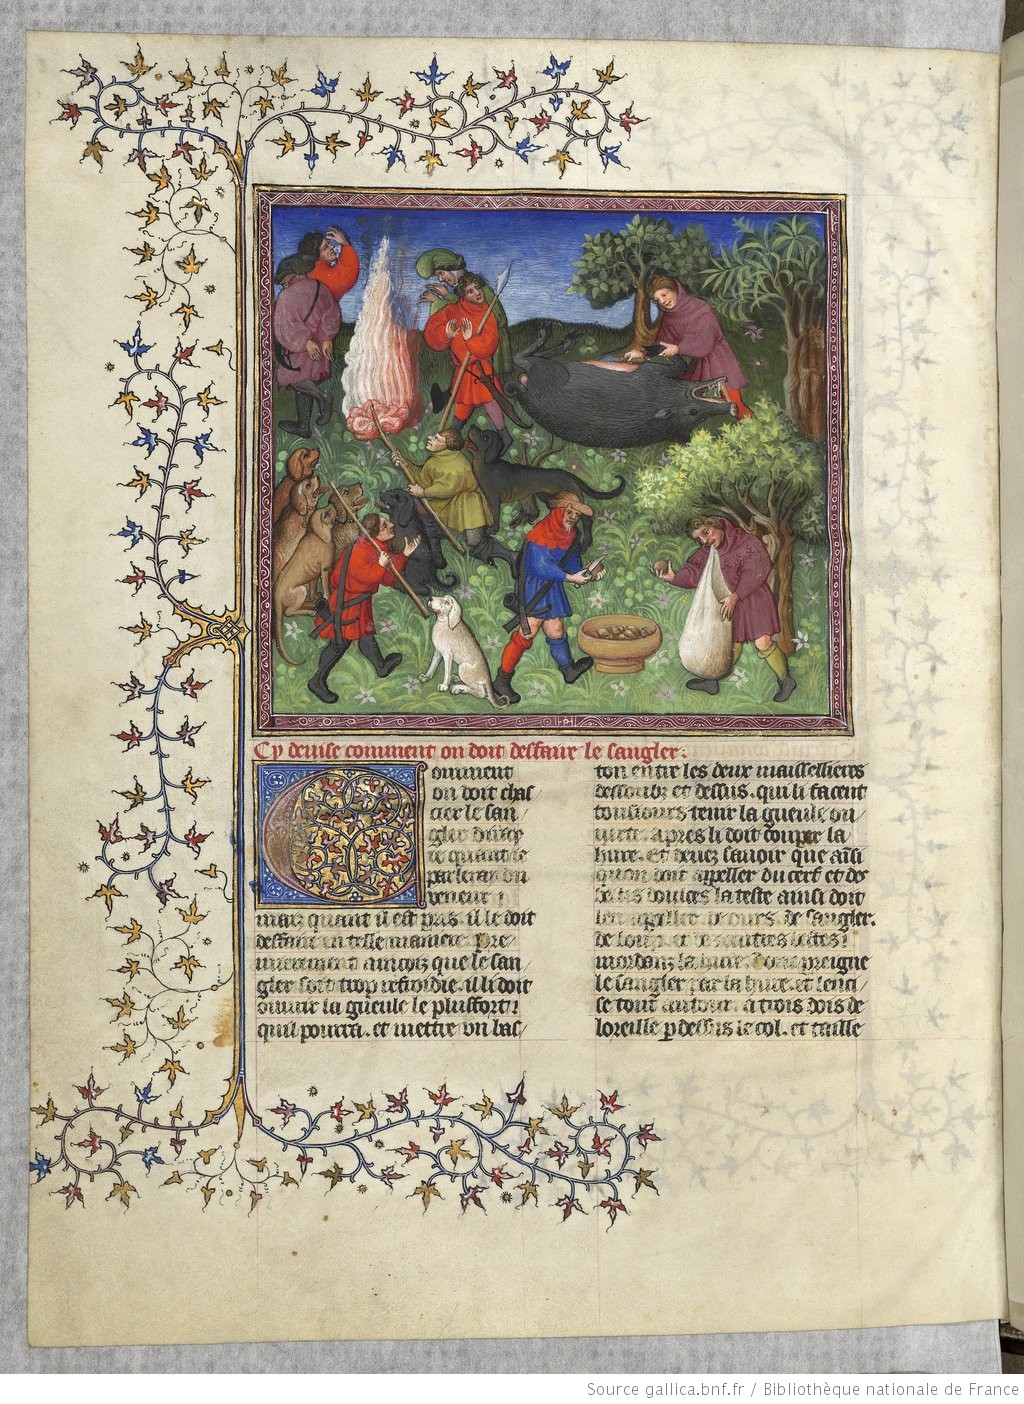 Cy deuise comment on doit deffaire le sanglier.
Comment
on doit chas
cier le san
gler
ie quant ie
parleray du
veneur
mais quant il est pris. il le doit
deffaire en telle maniere. Pre
mierement aincois que le san
gler soit trop refroidie. il li doit
ouurir la gueule le plus fort
quil pourra. et mettre un bas
ton entre les deux maissellieres
dessoubz et dessus. qui li facent
tousiours tenir la gueule ou
uerte. apres li doit couper la
hure. Et deuez sauoir que aussi
quon doit appeller du cerf et des
bestes douces la teste ainsi doit
len appeller de ours. de sangler.
de lou et autres bestes
mordanz la hure. preigne
le sangler par la hure. et lenci
se tout autour. a trois dois de
loreille p dessus le col. et taille
Source gallica.bnf.fr / Bibliothèque nationale de France